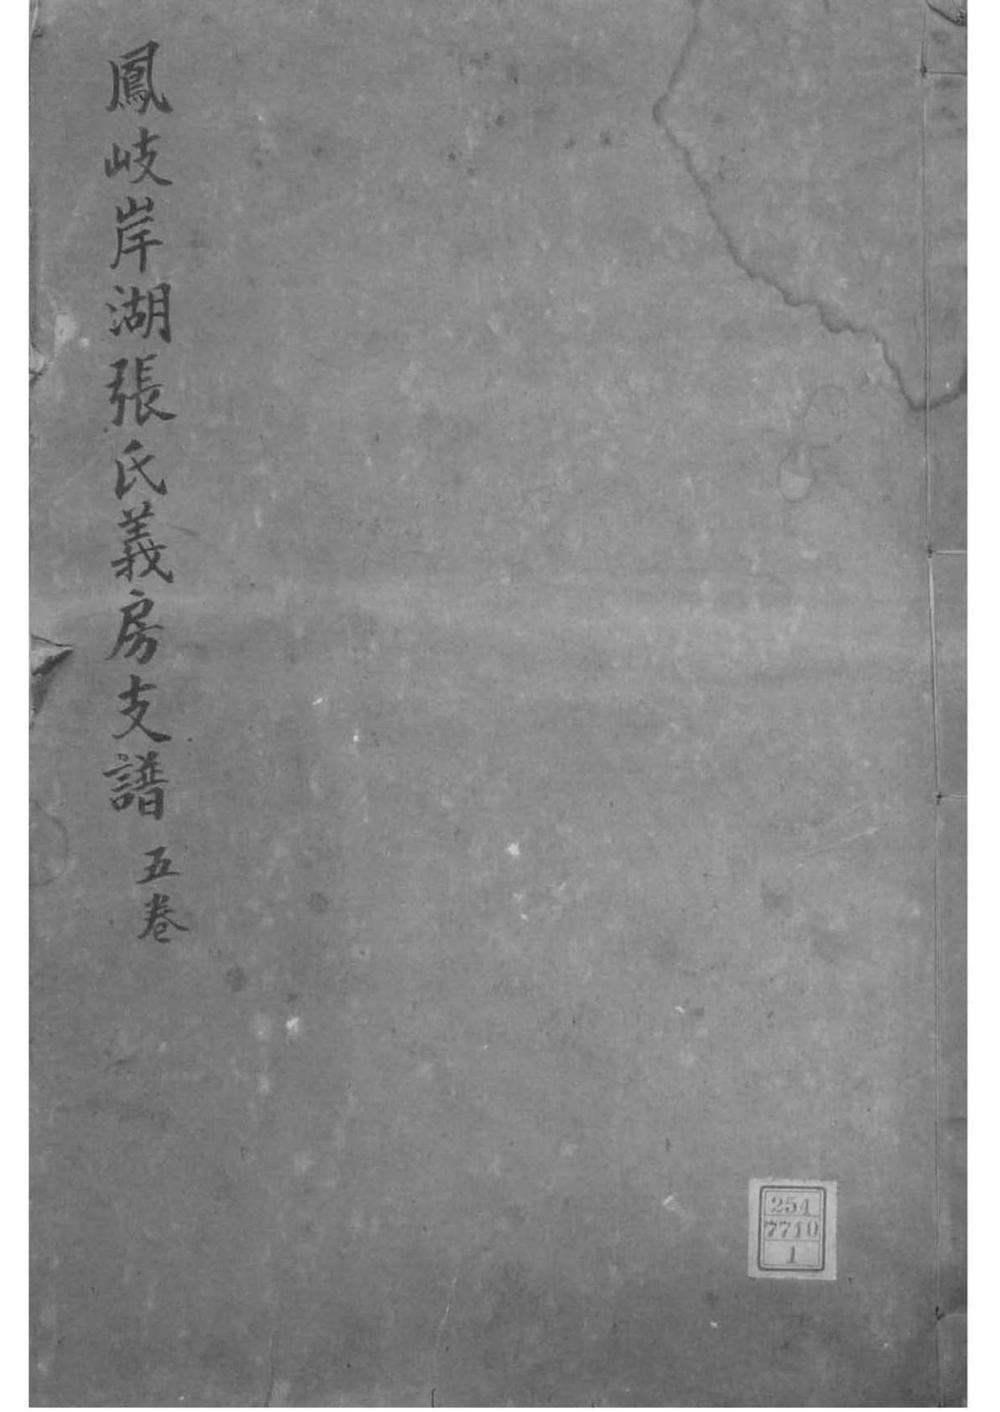 鳳岐岸湖張氏義房支譜 五卷
254
7710
1